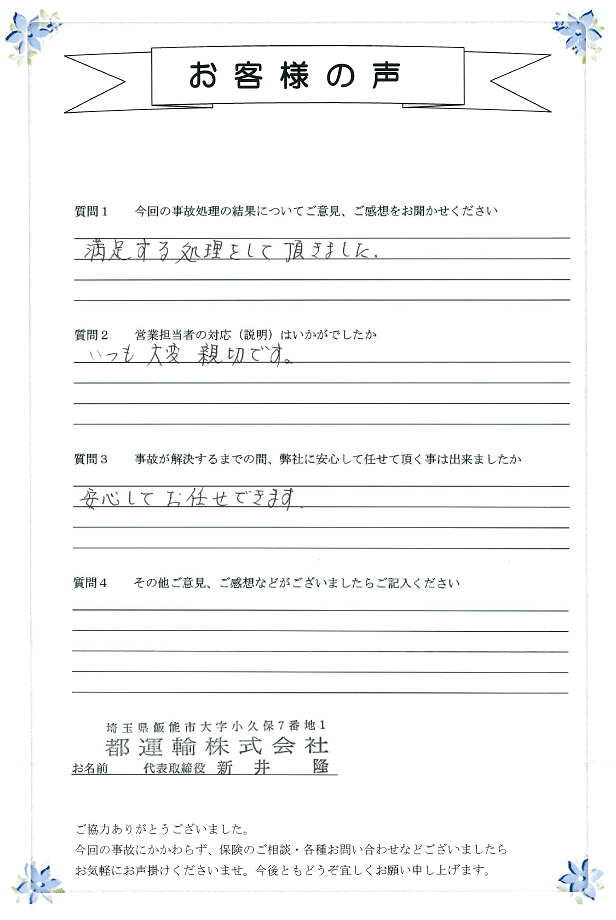 お客様の声
質問１　今回の事故処理の結果についてご意見、ご感想をお聞かせください
満足する処理をして頂きました.
質問２　営業担当者の対応（説明）はいかがでしたか
いつも 大変 親切です。
質問３　事故が解決するまでの間、弊社に安心して任せて頂く事は出来ましたか
安心して お任せできます.
質問４　その他ご意見、ご感想などがございましたらご記入ください
埼玉県飯能市大字小久保7番地1
都運輸株式会社
お名前　代表取締役 新井 隆
ご協力ありがとうございました。
今回の事故にかかわらず、保険のご相談・各種お問い合わせなどございましたら
お気軽にお声掛けくださいませ。今後ともどうぞ宜しくお願い申し上げます。